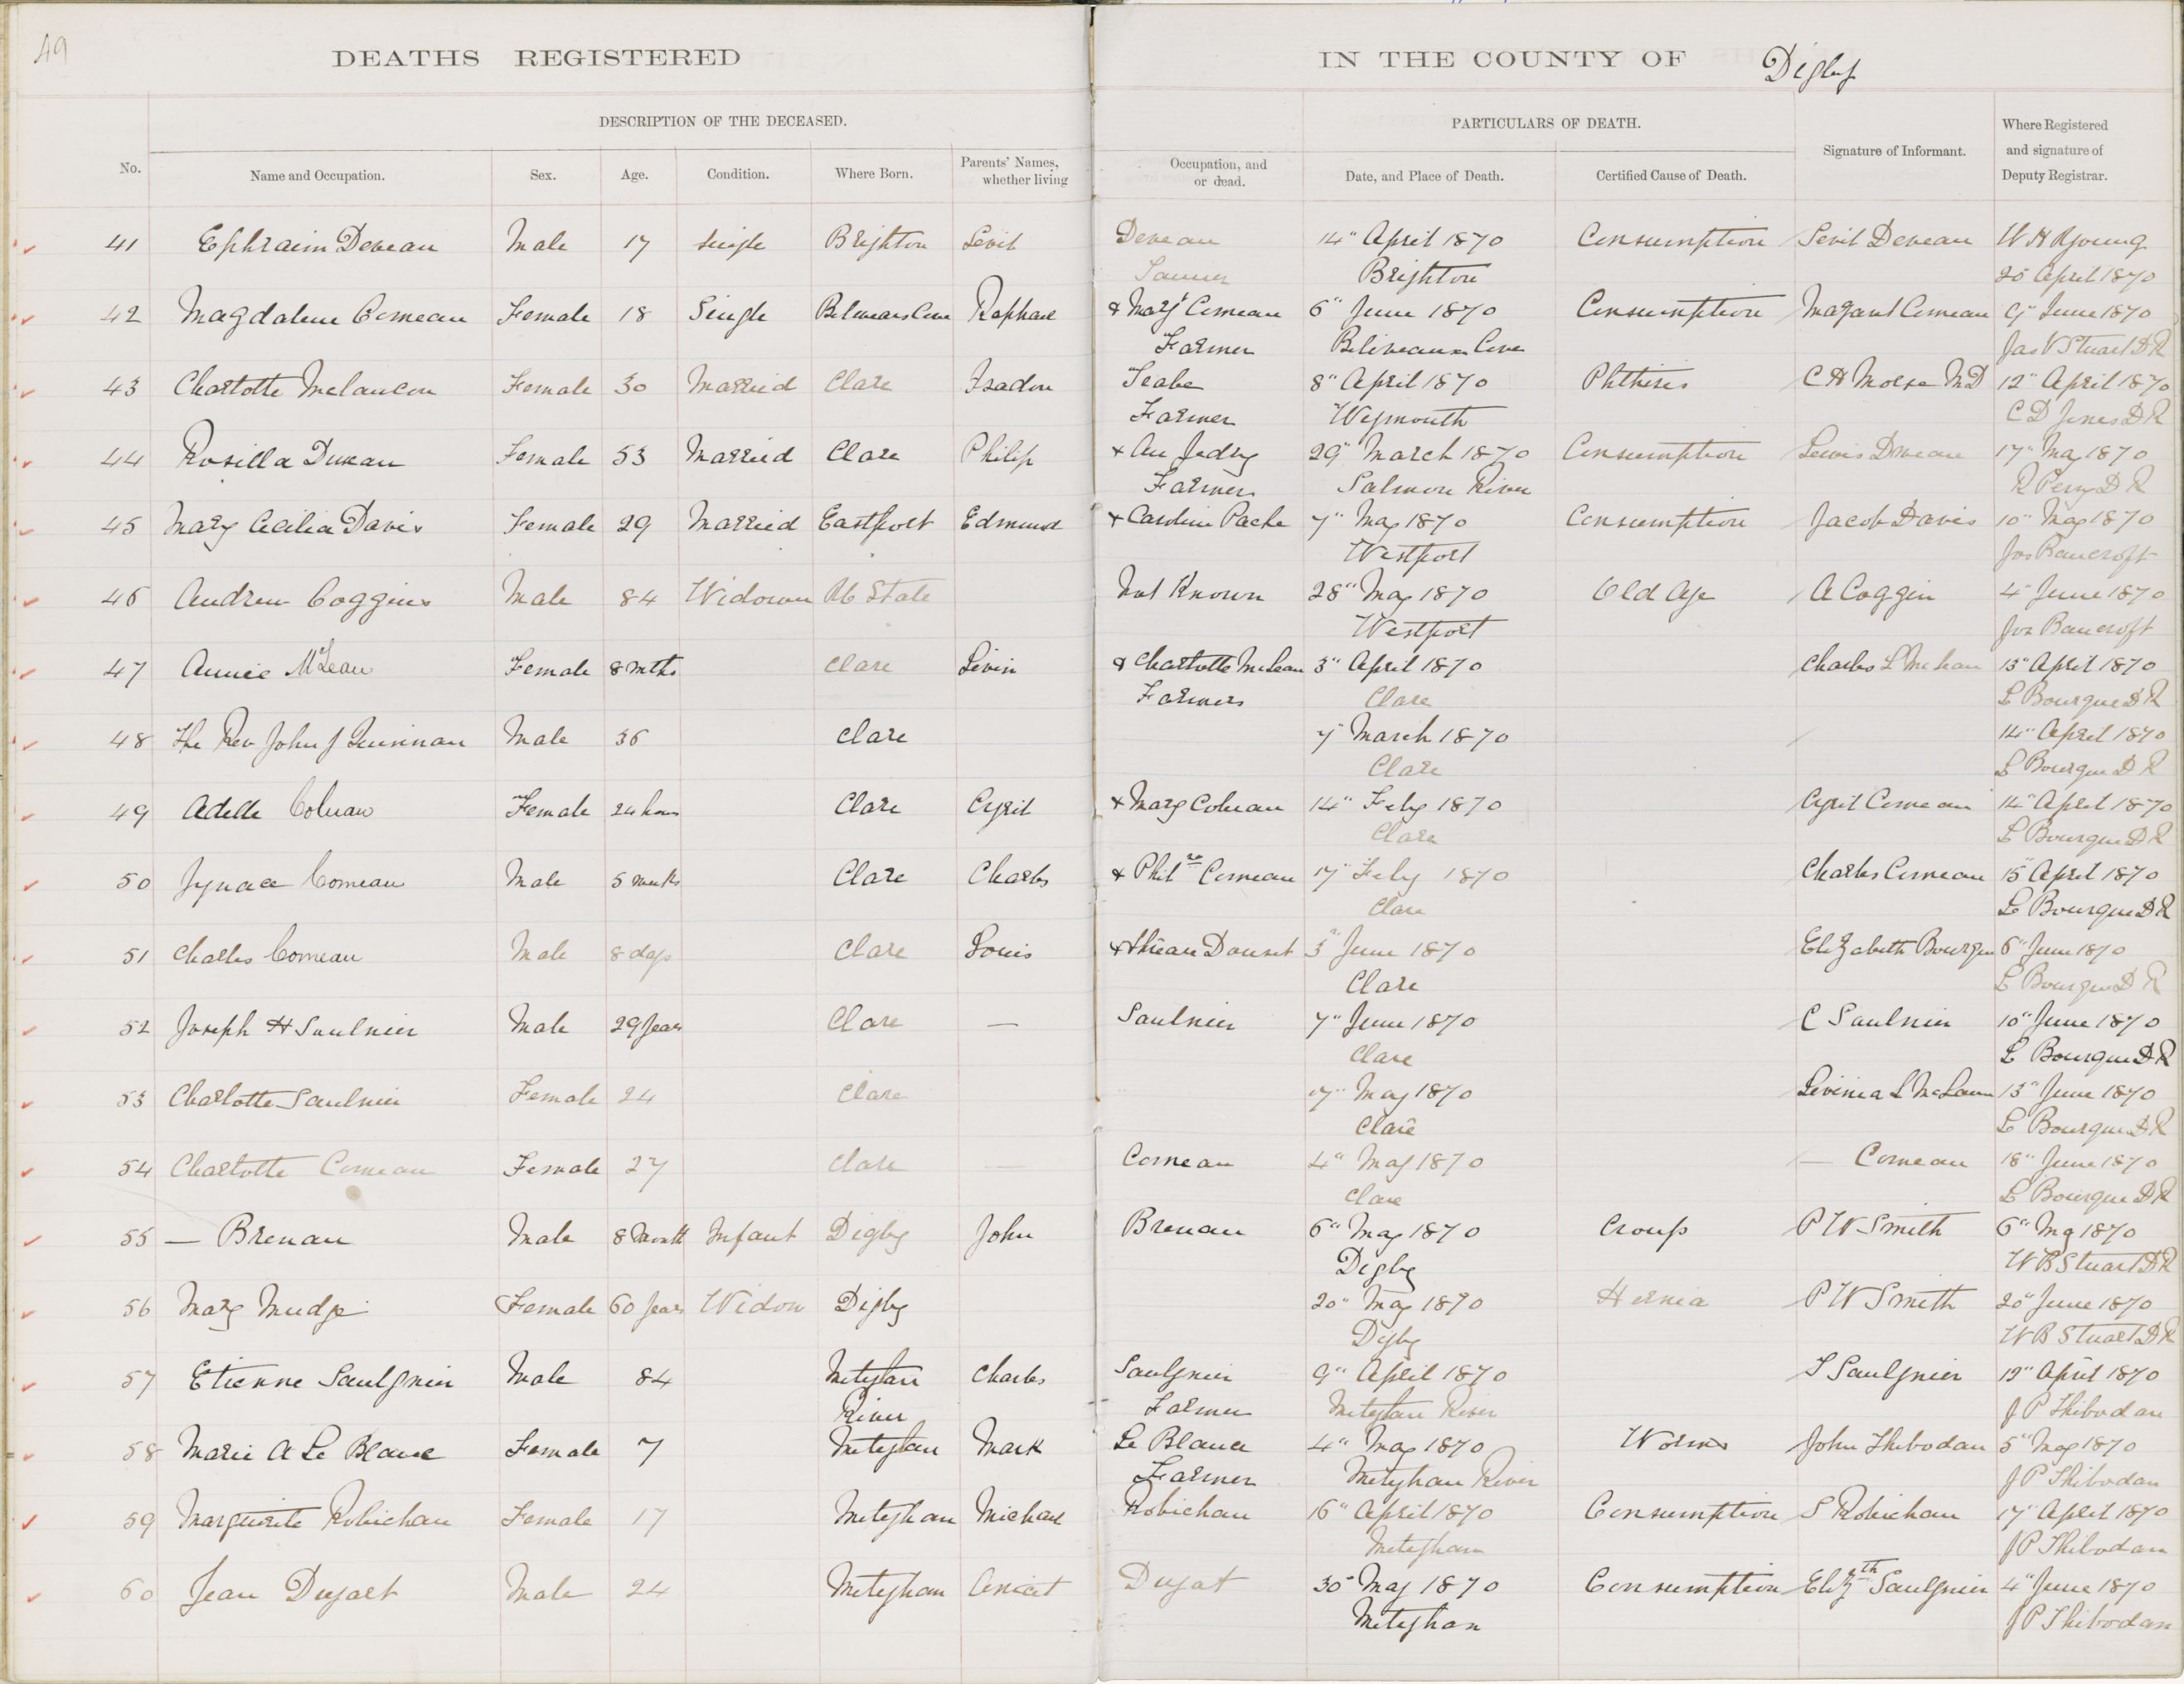 49
DEATHS REGISTERED IN THE COUNTY OF Digby
DESCRIPTION OF THE DECEASED. PARTICULARS OF DEATH.
No. Name and Occupation. Sex. Age. Condition. Where Born. Parents' Names, whether living Occupation, and or dead. Date, and Place of Death. Certified Cause of Death. Signature of Informant. Where Registered and signature of Deputy Registrar.
41 Ephraim Deveau Male 17 Single Brighton Levit Deveau 14" April 1870 Consumption Levit Deveau W H Young
Brighton 20 April 1870
42 Magdalene Comeau Female 18 Single Raphael & Mary Comeau 6" June 1870 Consumption Comeau 9" June 1870
Farmer Beliveaux Cove Jas V Stuart D R
43 Charlotte Melancon Female 30 Married Clare 8" April 1870 Phthisis C H Morse M D 12" April 1870
Farmer Weymouth C D Jones D R
44 Rosilla Female 53 Married Clare Philip 29" March 1870 Consumption Lewis 17" May 1870
Farmer Salmon River R Perry D R
45 Mary Cecilia Davis Female 29 Married Eastport Edmund & Caroline 7" May 1870 Consumption Jacob Davis 10" May 1870
Westport Jos Bancroft
46 Andrew Coggins Male 84 Widower State Not Known 28" May 1870 Old Age A Coggin 4" June 1870
Westport Jos Bancroft
47 Annie McLean Female 8 mths Clare & Charlotte McLean 3" April 1870 Charles L McLean 13" April 1870
Farmers Clare L Bourque D R
48 The Rev John J Quinnan Male 36 Clare 7" March 1870 14" April 1870
Clare L Bourque D R
49 Adelle Female 24 hours Clare Cyril & Mary 14" Feby 1870 Cyril Comeau 14" April 1870
Clare L Bourque D R
50 Comeau Male 5 weeks Clare Charles & Comeau 17" Feby 1870 Charles Comeau 15" April 1870
Clare L Bourque D R
51 Charles Comeau Male 8 days Clare Louis 3" June 1870 Elizabeth Bourque 6" June 1870
Clare L Bourque D R
52 Joseph H Saulnier Male 29 years Clare — Saulnier 7" June 1870 C Saulnier 10" June 1870
Clare L Bourque D R
53 Charlotte Saulnier Female 24 Clare 17" May 1870 13" June 1870
Clare L Bourque D R
54 Charlotte Comeau Female 27 Clare — Comeau 4" May 1870 — Comeau 18" June 1870
Clare L Bourque D R
55 — Brenan Male 8 Month Infant Digby John Brenan 6" May 1870 Croup P W Smith 6" May 1870
Digby W B Stuart D R
56 Mary Mudge Female 60 years Widow Digby 20" May 1870 Hernia P W Smith 20" June 1870
Digby W B Stuart D R
57 Etienne Saulgnier Male 84 Meteghan Charles Saulgnier 9" April 1870 S Saulgnier 12" April 1870
River Farmer Meteghan River J P Thibodau
58 Marie A Le Blanc Female 7 Meteghan Mark Le Blanc 4" May 1870 Worms John Thibodau 5" May 1870
Farmer Meteghan River J P Thibodau
59 Marguerite Robichau Female 17 Meteghan Michael Robichau 16" April 1870 Consumption S Robichau 17" April 1870
Meteghan J P Thibodau
60 Jean Male 24 Meteghan Anicet 30" May 1870 Consumption Elizth Saulgnier 4" June 1870
Meteghan J P Thibodau